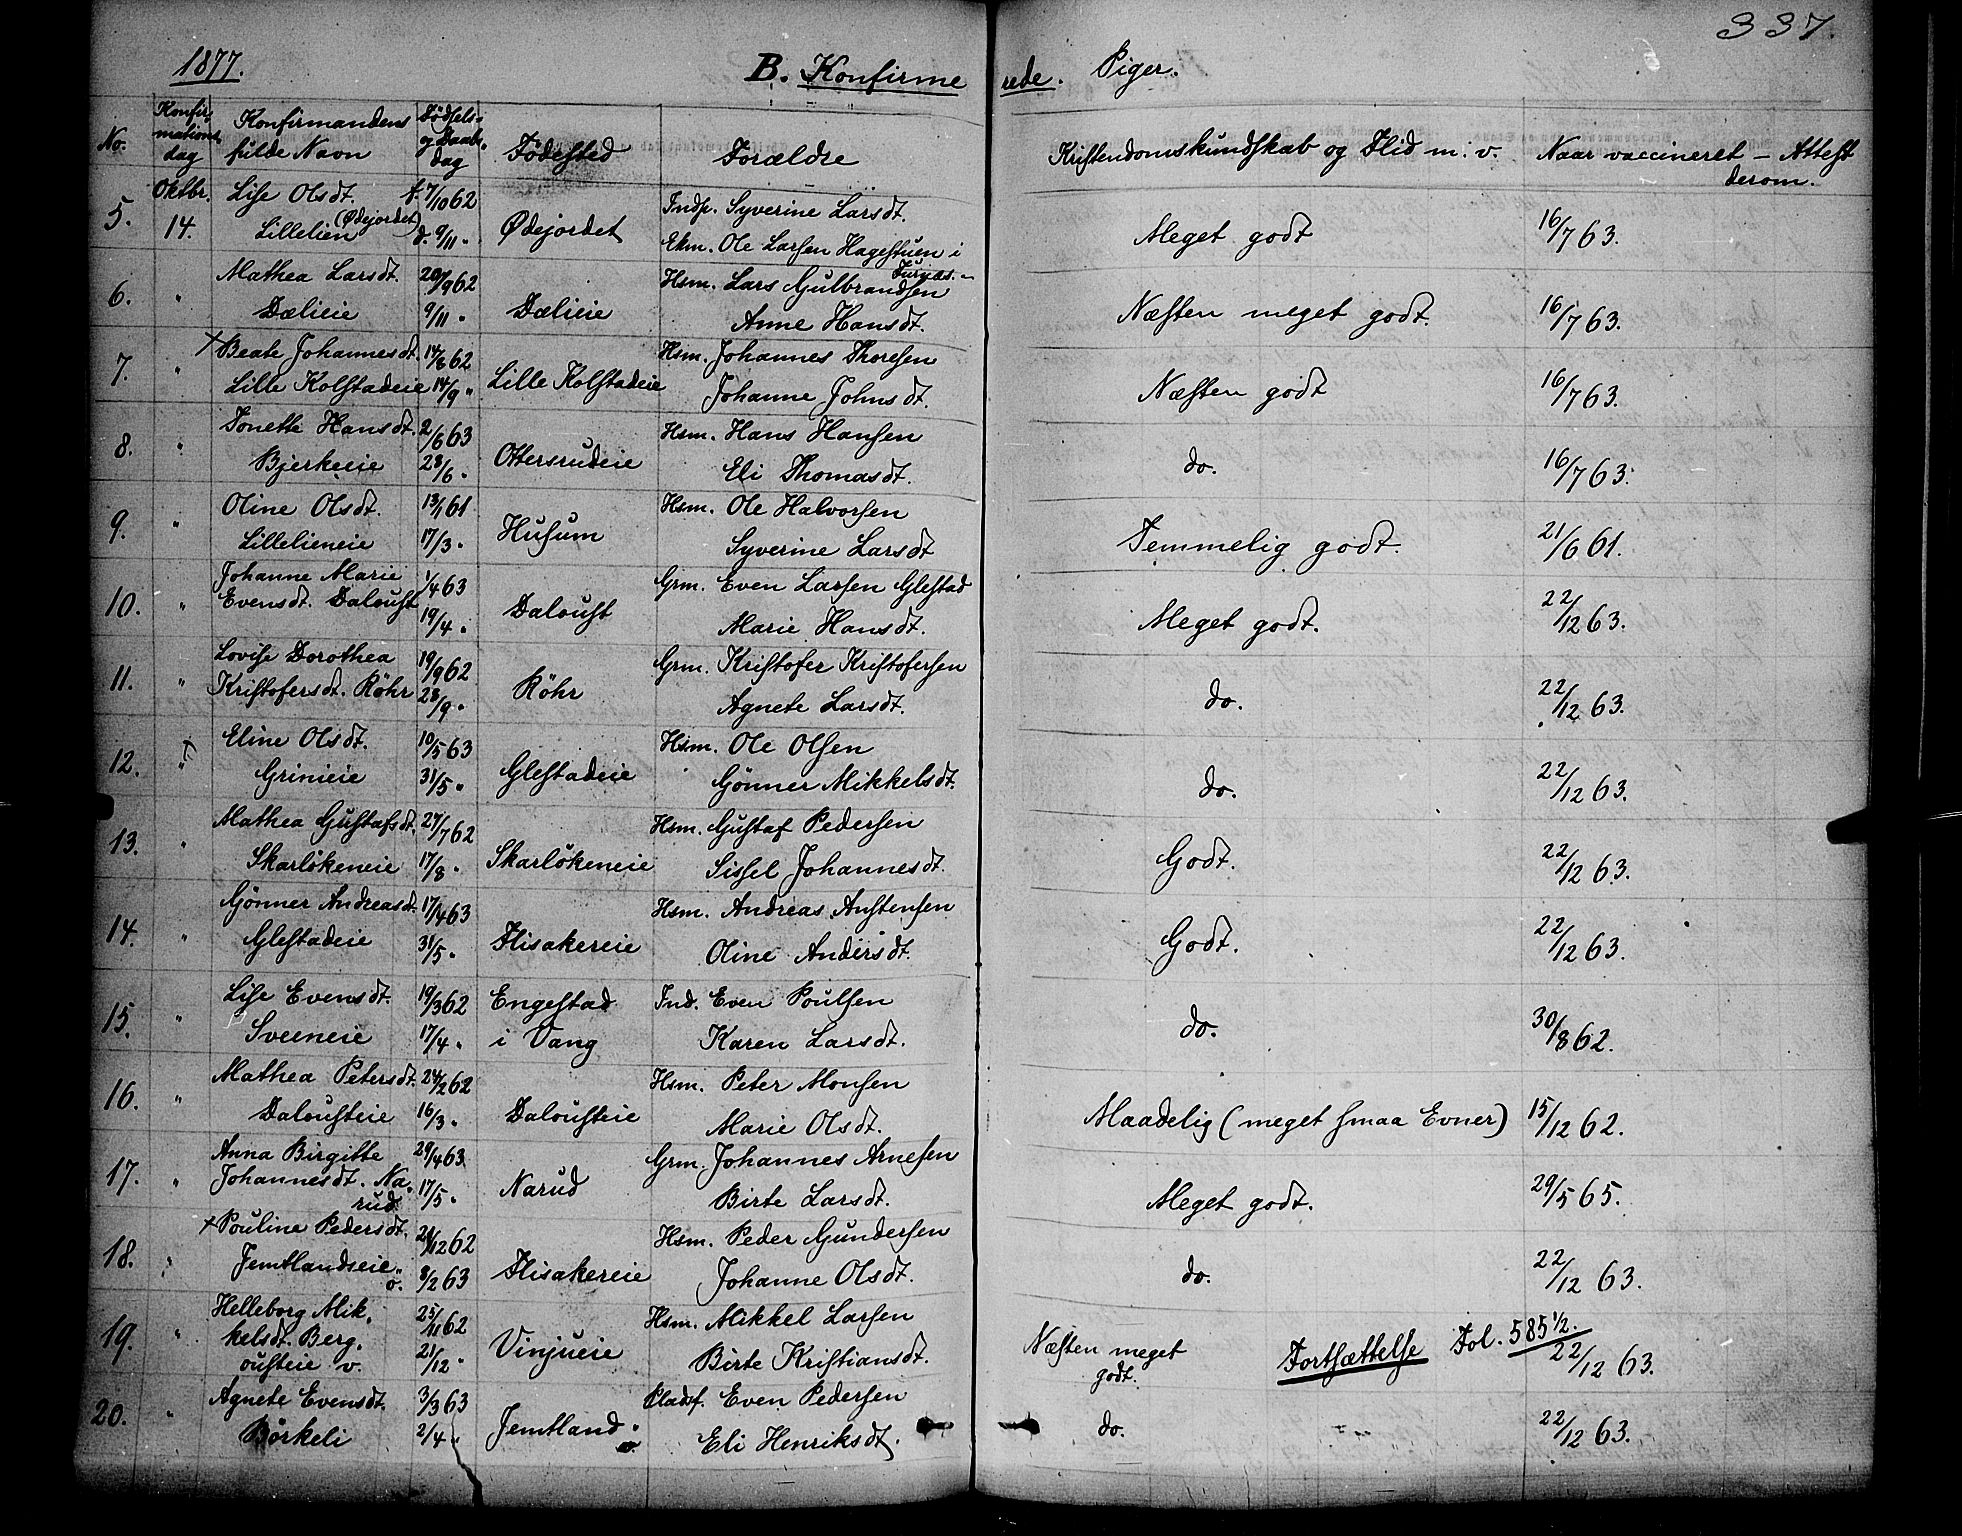 337.
1877. B. Konfirmerede. Piger.
No. Konfirmationsdag Konfirmandens fulde Navn Födsels- og Daabsdag Födested Forældre Kristendomskundskab og Flid m. v. Naar vaccineret - Attest derom.
5. Oktbr. 14. Lise Olsdt. Lillelien (Ødejordet) f. 7/10 62 d. 9/11 " Ødejordet Indp. Syverine Larsdt. Ekm. Ole Larsen Hagestuen i Furnæs. Meget godt 16/7 63.
6. " Mathea Larsdt. Dælieie 20/9 62 9/11 " Dælieie Hsm. Lars Gulbrandsen Anne Hansdt. Næsten meget godt. 16/7 63.
7. " + Beate Johannesdt. Lille Kolstadeie 14/8 62 14/9 " Lille Kolstadeie Hsm. Johannes Thoresen Johanne Johnsdt. Næsten godt 16/7 63.
8. " Tonette Hansdt. Bjerkeeie 2/6 63 28/6 " Ottersrudeie Hsm. Hans Hansen Eli Thomasdt. do. 16/7 63.
9. " Oline Olsdt. Lillelieneie 13/1 61 17/3 " Husum Hsm. Ole Halvorsen Syverine Larsdt Temmelig godt. 21/6 61.
10. " Johanne Marie Evensdt. Daloust 1/4 63 19/4 " Daloust Grm. Even Larsen Glestad Marie Hansdt. Meget godt. 22/12 63.
11. " Lovise Dorothea Kristofersdt. Röhr 19/9 62 28/9 " Röhr Grm. Kristofer Kristofersen Agnete Larsdt. do. 22/12 63.
12. " Eline Olsdt. Grinieie 10/5 63 31/5 " Glestadeie Hsm. Ole Olsen Gönner Mikkelsdt. do. 22/12 63.
13. " Mathea Gustafsdt. Skarlökeneie 27/7 62 17/8 " Skarlökeneie Hsm. Gustaf Pedersen Sissel Johannesdt. Godt. 22/12 63.
14. " Gönner Andreasdt. Glestadeie 17/4 63 31/5 " Flisakereie Hsm. Andreas Austensen Oline Andersdt. Godt. 22/12 63.
15. " Lise Evensdt. Sveeneie 19/3 62 17/4 " Engestad i Vang Ind. Even Poulsen Karen Larsdt. do. 30/8 62.
16. " Mathea Petersdt. Dalousteie 24/2 62 16/3 " Dalousteie Hsm. Peter Monsen Marie Olsdt. Maadelig (meget smaa Evner) 15/12 62.
17. " Anna Birgitte Johannesdt. Narud 29/4 63 17/5 " Narud Grm. Johannes Arnesen Birte Larsdt. Meget godt. 29/5 65.
18. " + Pouline Pedersdt. Jemtlandseie o. 28/12 62 8/2 63 Flisakereie Hsm. Peder Gundersen Johanne Olsdt. do. 22/12 63.
19. " Helleborg Mikkelsdt. Bergousteie v. 25/11 62 21/12 " Vinjueie Hsm. Mikkel Larsen Birte Kristiansdt. Næsten meget godt. Fortsættelse Fol. 585 1/2. 22/12 63.
20. " Agnete Evensdt. Börkeli 3/3 63 2/4 " Jemtland o. Pladsf. Even Pedersen Eli Henriksdt. do. 22/12 63.